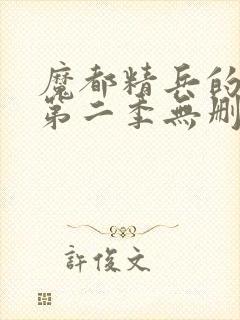 魔都精兵的
第二季無刪
許俊文